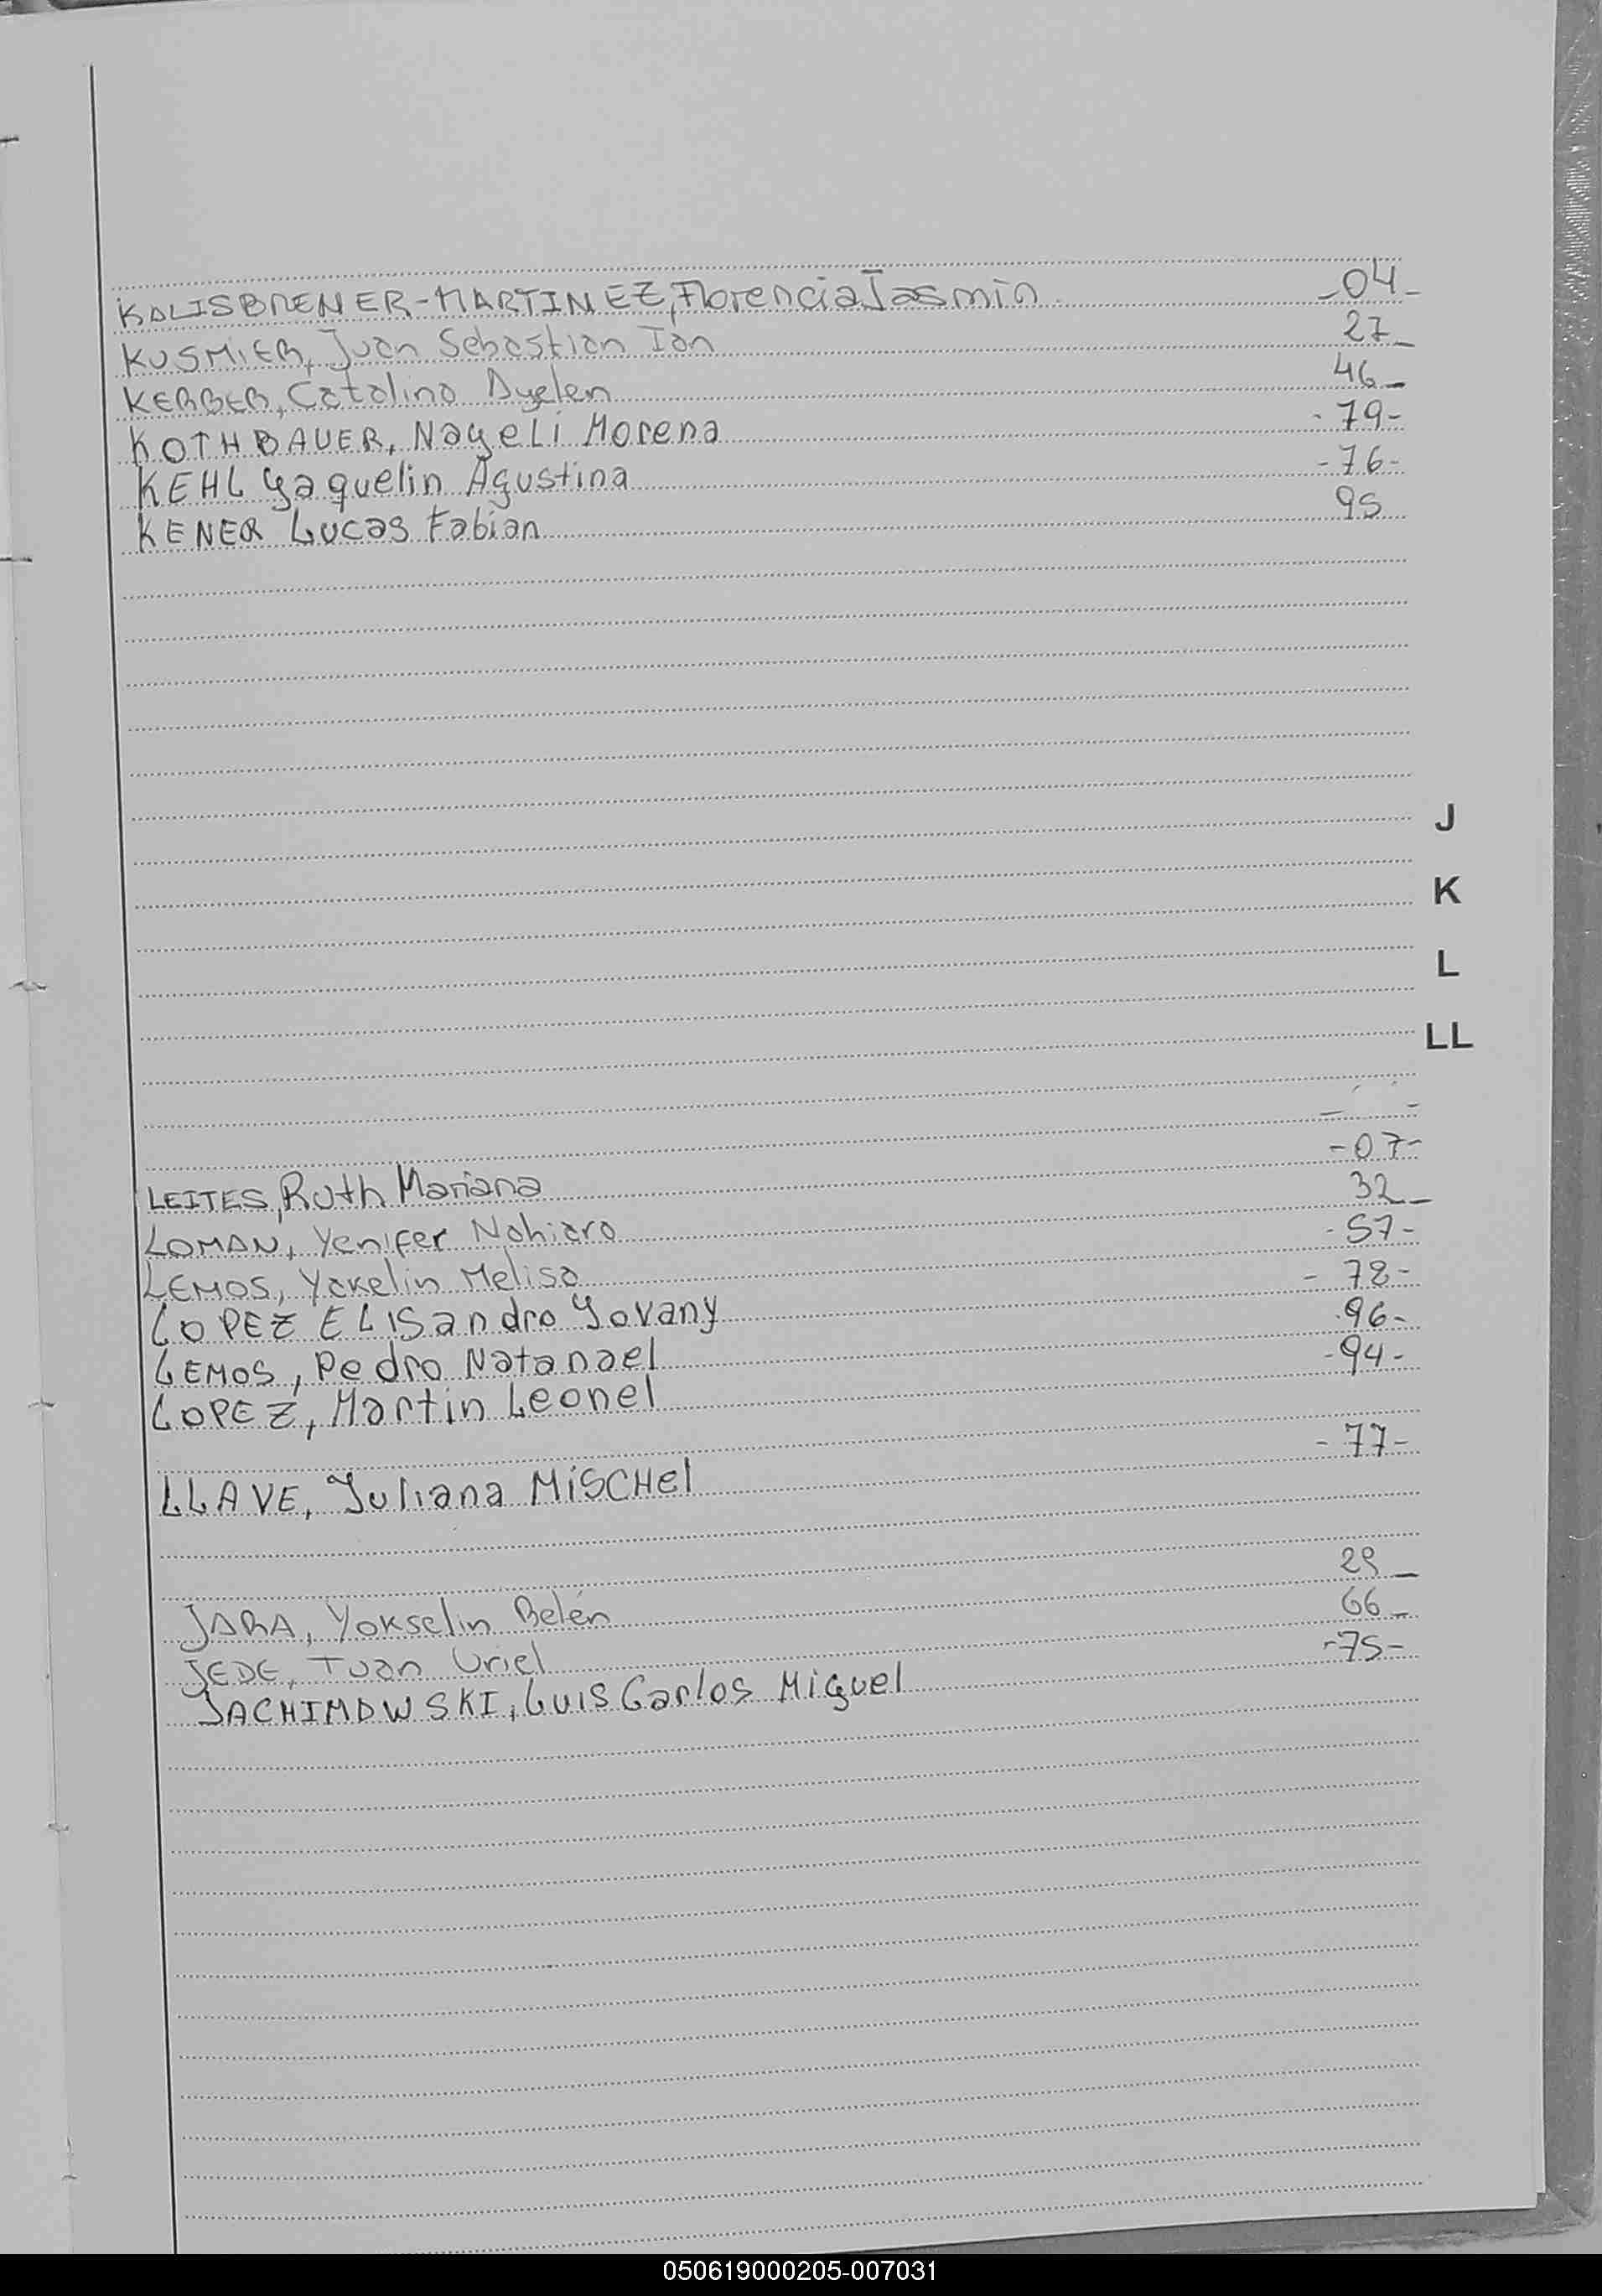 KALISBRENER-MARTINEZ, Florencia Jasmin -04-
KUSMIER, Juan Sebastian Ian 27-
KERBER, Catalina Ayelen 46-
KOTHBAUER, Nayeli Morena -79-
KEHL Yaquelin Agustina -76-
KENER Lucas Fabian 95
J
K
L
LL
LEITES, Ruth Mariana -07-
LOMAN, Yenifer Nahiara 32-
LEMOS, Yakelin Melisa -57-
LOPEZ ELISandro Yovany -78-
LEMOS, Pedro Natanael -96-
LOPEZ, Martin Leonel -94-
LLAVE, Yuliana MiSCHel -77-
JARA, Yokselin Belén 29-
JEDE, Juan Uriel 66-
JACHIMOWSKI, Luis Carlos Miguel -75-
050619000205-007031